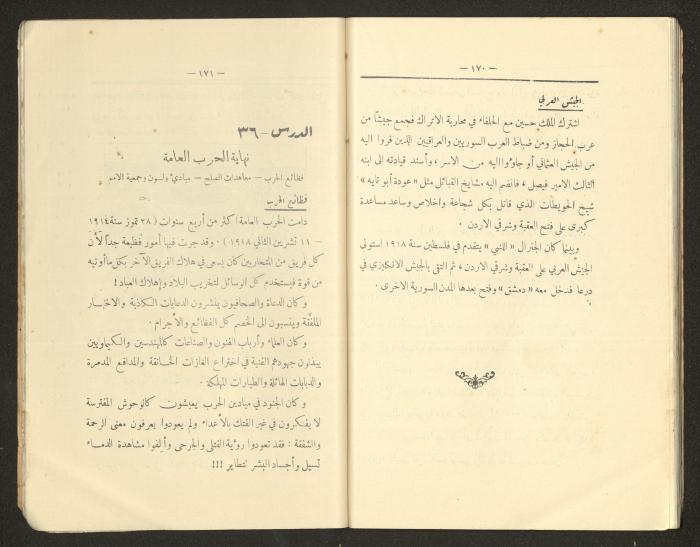 — ١٧٠ —
الجيش العربي
اشترك الملك حسين مع الحلفاء في محاربة الاتراك فجمع جيشاً من
عرب الحجاز ومن ضباط العرب السوريين والعراقيين الذين فروا اليه
من الجيش العثماني أو جاؤوا اليه من الاسر ، وأسند قيادته الى ابنه
الثالث الامير فيصل ، فانضم اليه مشايخ القبائل مثل « عودة أبو تايه »
شيخ الحويطات الذي قاتل بكل شجاعة واخلاص وساعد مساعدة
كبرى على فتح العقبة وشرقي الاردن .
وبينما كان الجنرال « اللنبي » يتقدم في فلسطين سنة ١٩١٨ استولى
الجيش العربي على العقبة وشرقي الاردن ، ثم التقى بالجيش الانكليزي في
درعا فدخل معه « دمشق » وفتح بعدها المدن السورية الاخرى .
— ١٧١ —
الدرس - ٣٦
نهاية الحرب العامة
فظائع الحرب — معاهدات الصلح — مبادئ ولسون وجمعية الامم
فظائع الحرب
دامت الحرب العامة اكثر من أربع سنوات ( ٢٨ تموز سنة ١٩١٤
– ١١ تشرين الثاني ١٩١٨ ) . وقد جرت فيها أمور فظيعة جداً لأن
كل فريق من المتحاربين كان يسعى في هلاك الفريق الآخر بكل ما أوتيه
من قوة فيستخدم كل الوسائل لتخريب البلاد وإهلاك العباد !
وكان الدعاة والصحافيون ينشرون الدعايات الكاذبة والاخبار
الملفقة وينسبون الى الخصم كل الفظائع والأجرام .
وكان العلماء وأرباب الفنون والصناعات كالمهندسين والكيماويين
يبذلون جهودهم الفنية في اختراع الغازات الخانقة والمدافع المدمرة
والدبابات الهائلة والطيارات المهلكة .
وكان الجنود في ميادين الحرب يعيشون كالوحوش المفترسة
لا يفكرون في غير الفتك بالأعداء ولم يعودوا يعرفون معنى الرحمة
والشفقة : فقد تعودوا رؤية القتلى والجرحى وألفوا مشاهدة الدماء
تسيل وأجساد البشر تتطاير !!!